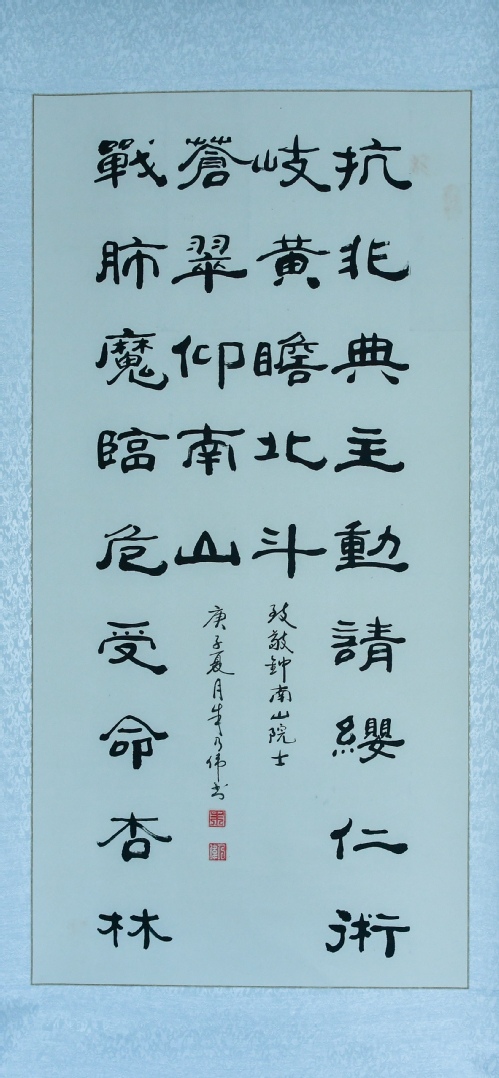 抗非典主動請纓仁術
岐黃瞻北斗
戰肺魔臨危受命杏林
蒼翠仰南山
致敬鈡南山院士
庚子夏月朱乃伟书